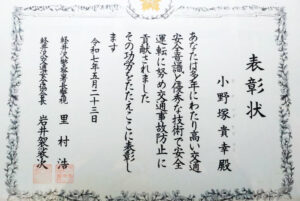 表彰状
小野塚貴幸殿
あなたは多年にわたり高い交通
安全意識と優秀な技術で安全
運転に努め交通事故防止に
貢献されました
その功労をたたえここに表彰し
ます
令和七年五月二十三日
軽井沢警察署長警視 里村浩
軽井沢交通安全協会長 岩井